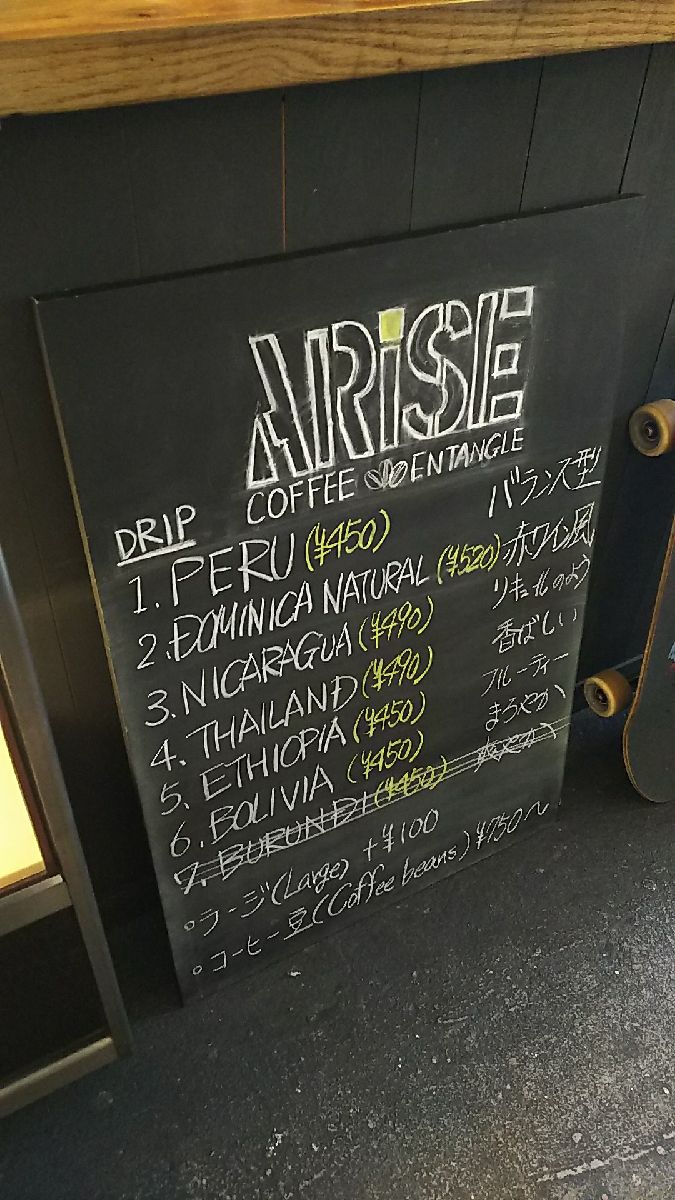 ARiSE
COFFEE ENTANGLE
DRIP
1. PERU (¥450) バランス型
2. DOMINICA NATURAL (¥520) 赤ワイン風
3. NICARAGUA (¥490) リキュールのよう
4. THAILAND (¥490) 香ばしい
5. ETHIOPIA (¥450) フルーティー
6. BOLIVIA (¥450) まろやか
7. BURUNDI (¥450)
ラージ(Large) +¥100
コーヒー豆(Coffee beans) ¥750〜